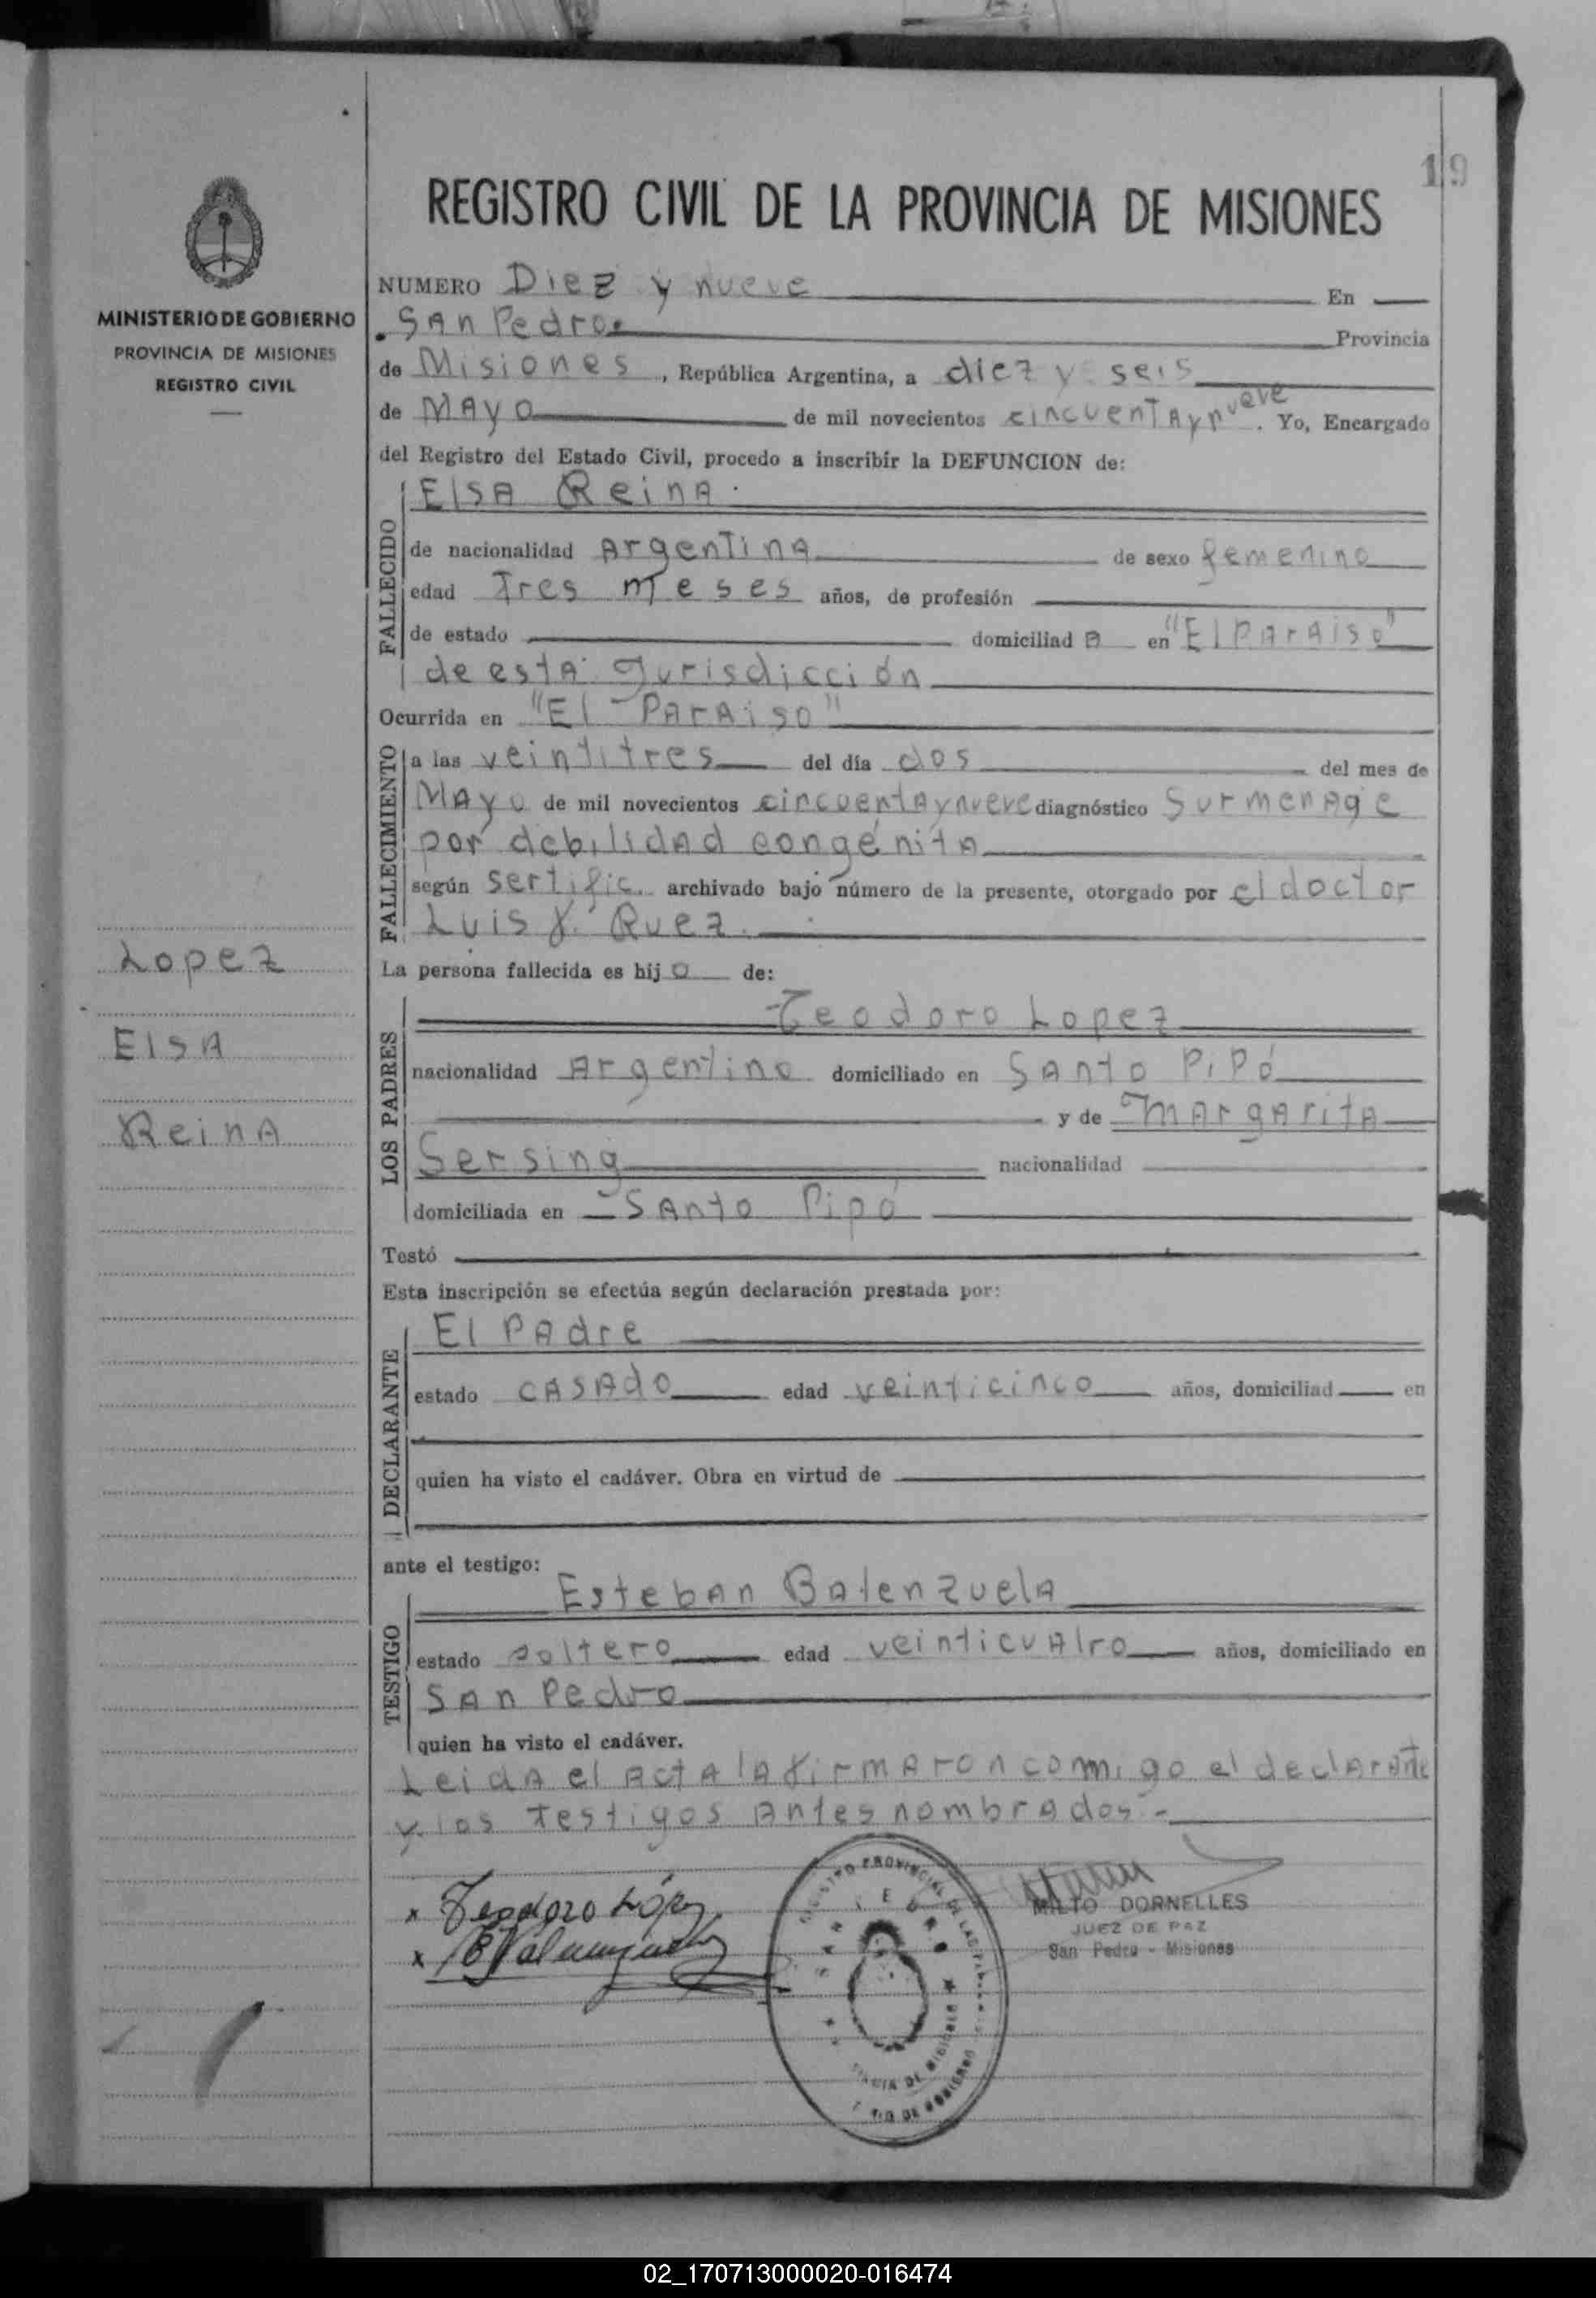 19
REGISTRO CIVIL DE LA PROVINCIA DE MISIONES
MINISTERIO DE GOBIERNO
PROVINCIA DE MISIONES
REGISTRO CIVIL
NUMERO Diez y nueve En
San Pedro. Provincia
de Misiones, República Argentina, a diez y seis
de Mayo de mil novecientos cincuenta y nueve. Yo, Encargado
del Registro del Estado Civil, procedo a inscribir la DEFUNCION de:
FALLECIDO
Elsa Reina.
de nacionalidad Argentina de sexo femenino
edad Tres meses años, de profesión
de estado domiciliad a en "El Paraiso"
de esta Jurisdicción
Ocurrida en "El Paraiso"
FALLECIMIENTO
a las veintitres del día dos del mes de
Mayo de mil novecientos cincuenta y nueve diagnóstico Surmenage
por debilidad congénita
según sertific. archivado bajo número de la presente, otorgado por el doctor
Luis
La persona fallecida es hij o de:
Lopez
Elsa
Reina
LOS PADRES
Teodoro Lopez
nacionalidad Argentino domiciliado en Santo Pipó
y de Margarita
Sersing nacionalidad
domiciliada en Santo Pipó
Testó
Esta inscripción se efectúa según declaración prestada por:
DECLARANTE
El Padre
estado casado edad veinticinco años, domiciliad en
quien ha visto el cadáver. Obra en virtud de
ante el testigo:
TESTIGO
Esteban Balenzuela
estado soltero edad veinticuatro años, domiciliado en
San Pedro
quien ha visto el cadáver.
Leida el acta la firmaron commigo el declarante
y los testigos antes nombrados.-
x Teodoro López
x
MILTO DORNELLES
JUEZ DE PAZ
San Pedro - Misiones
02_170713000020-016474